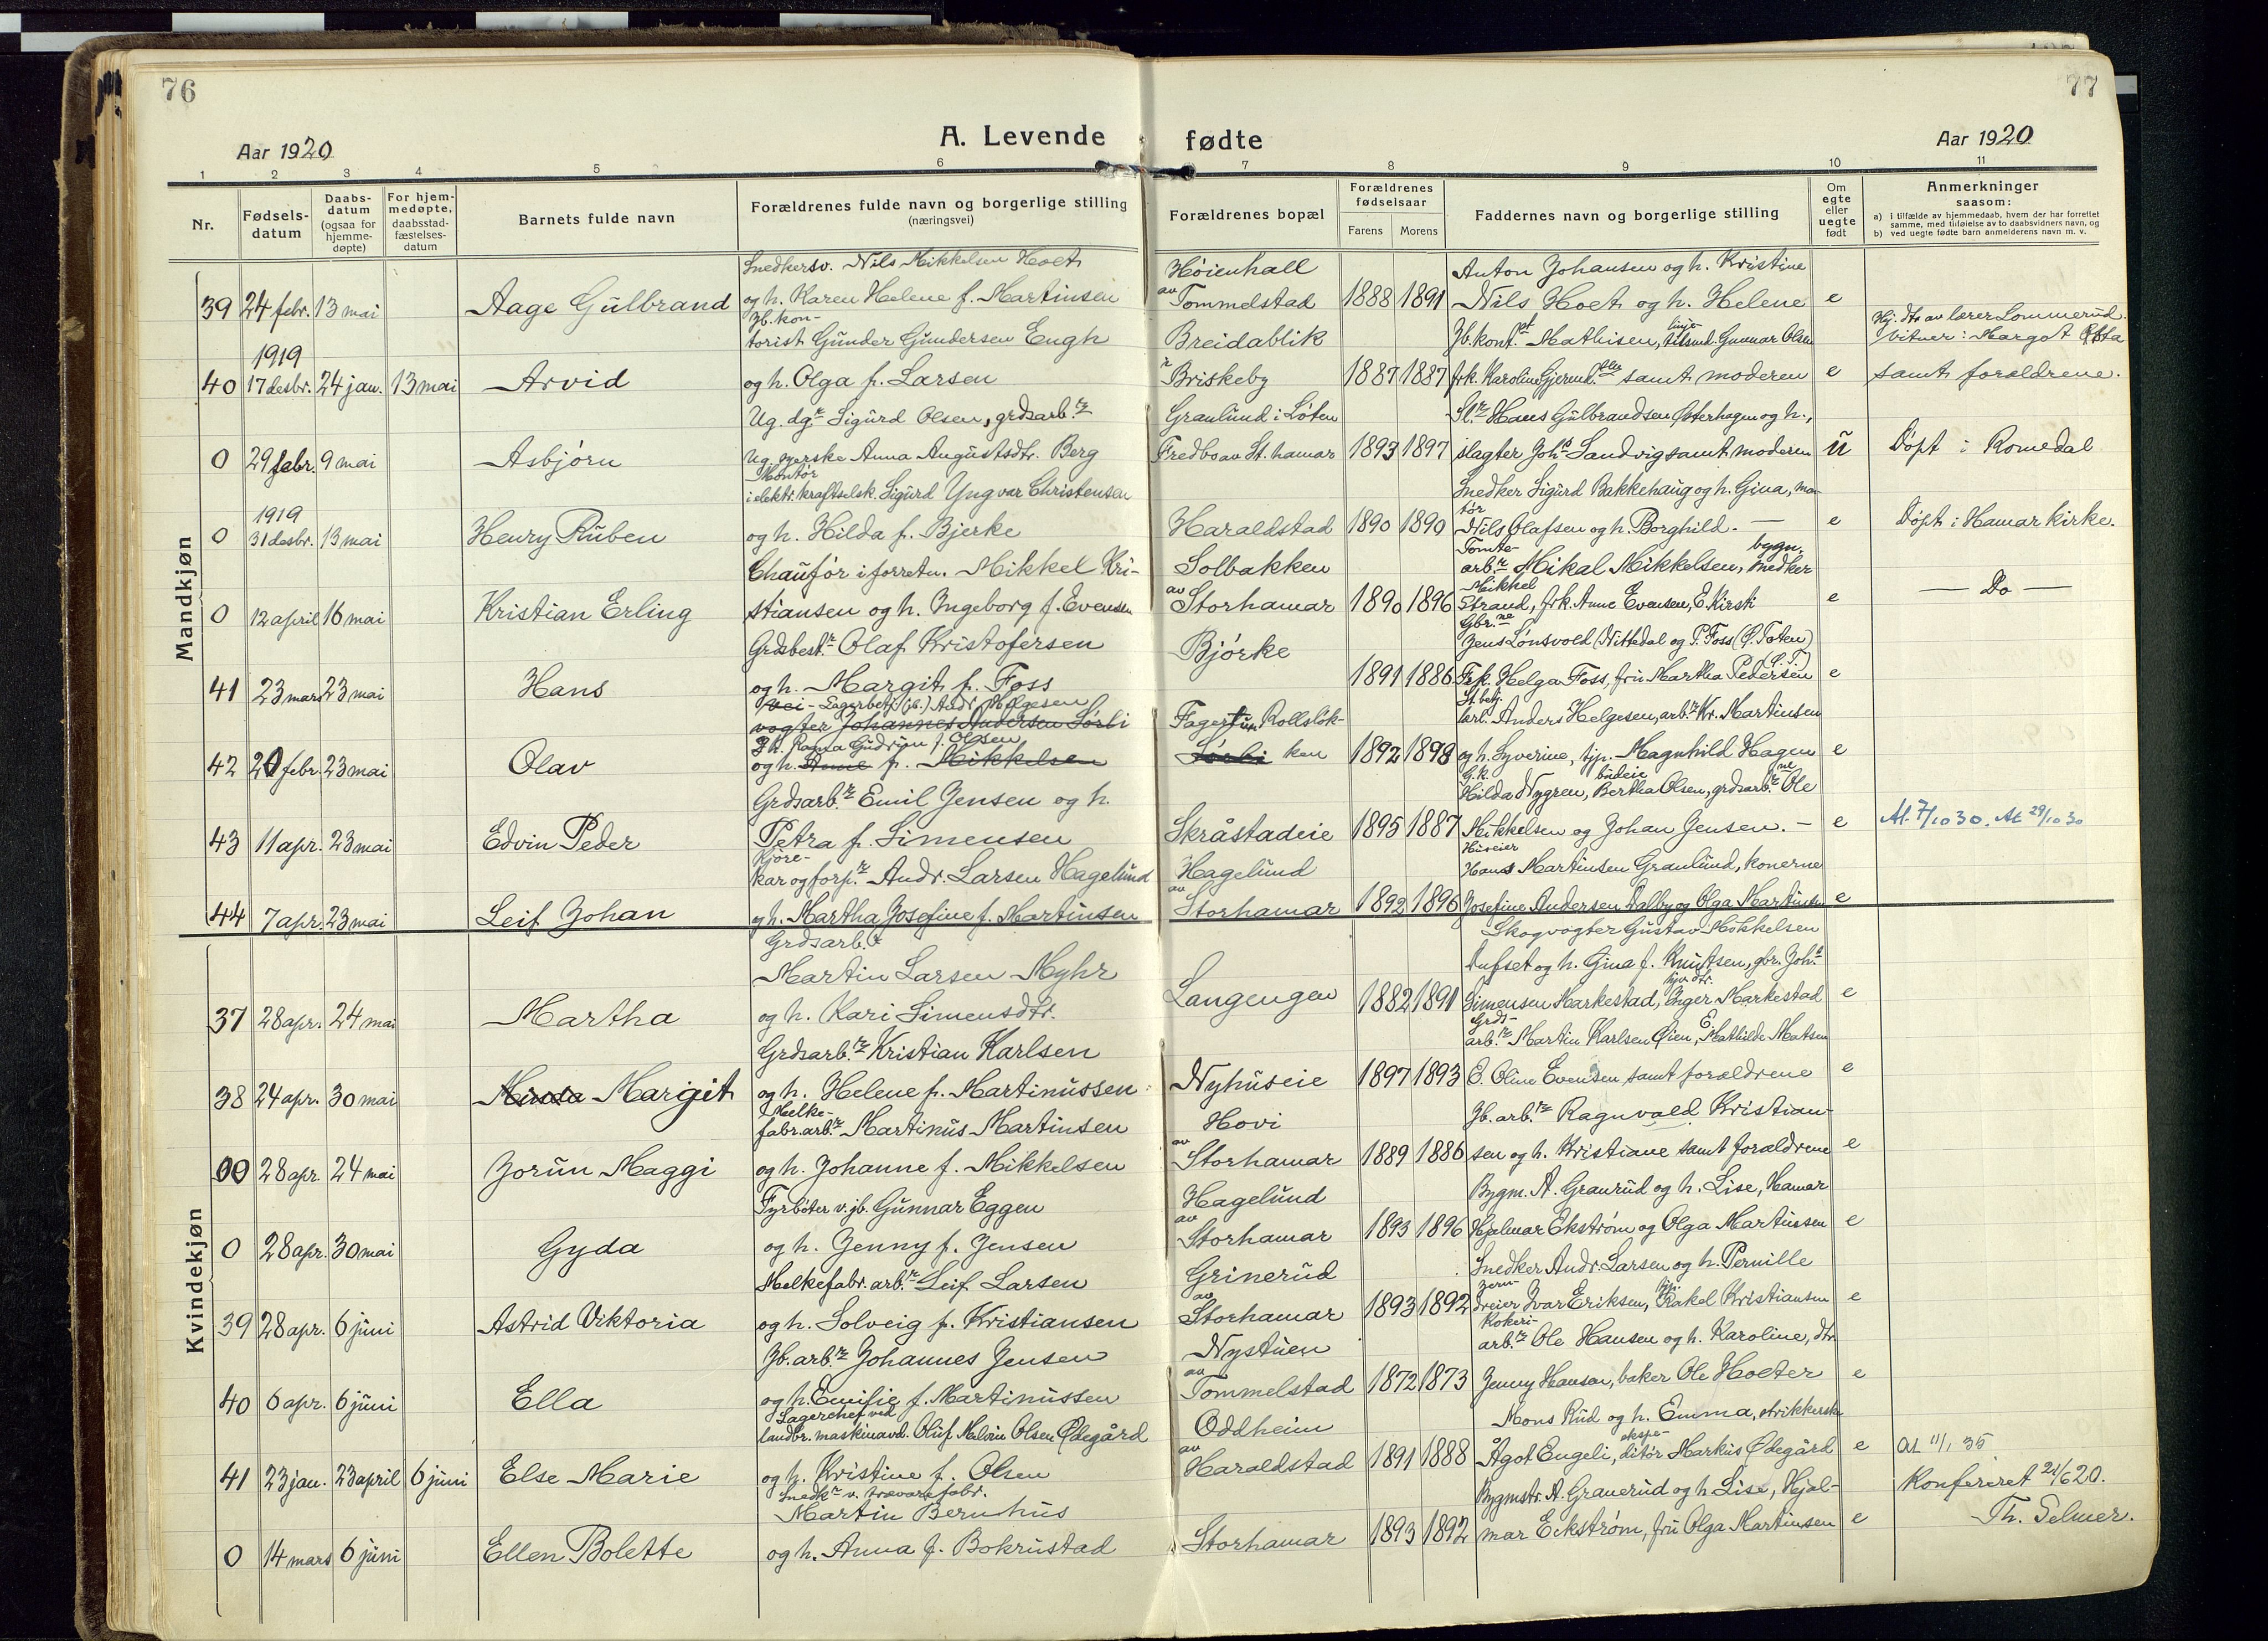 76
77
Aar 1920
A. Levende
fødte
Aar 1920
1 2 3 4 5 6 7 8 9 10 11
Nr.
Fødsels-
datum
Daabs-
datum
(ogsaa for
hjemme-
døpte)
For hjem-
medøpte,
daabsstad-
fæstelses-
datum
Barnets fulde navn
Forældrenes fulde navn og borgerlige stilling
(næringsvei)
Forældrenes bopæl
Forældrenes
fødselsaar
Farens Morens
Faddernes navn og borgerlige stilling
Om
egte
eller
uegte
født
Anmerkninger
saasom:
a) i tilfælde av hjemmedaab, hvem der har forrettet
samme, med tilføielse av to daabsvidners navn, og
b) ved uegte fødte barn anmelderens navn m. v.
Mandkjøn
Snedkersv. Nils Mikkelsen Hoet Høienhall Anton Johansen og h. Kristine
39 24 febr. 13 mai Aage Gulbrand og h. Karen Helene f. Martinsen av Tommelstad 1888 1891 Nils Hoet og h. Helene e
Jb. kon-
torist Gunder Gundersen Engh Breidablik Jb. kont. Mathisen, Gunnar Olsen Hj. dto av lærer Lommerud.
1919 Vitner: Margot
40 17 desbr. 24 jan. 13 mai Arvid og h. Olga f. Larsen Briskeby 1887 1887 frk. Karoline samt moderen e samt forældrene.
Ug. dgr. Sigurd Olsen, grdsarb.r Granlund i Løten Hans Gulbrandsen Østerhagen og h.,
0 29 febr. 9 mai Asbjørn Ug. syerske Anna Augustsdtr. Berg Fredbo av St. hamar 1893 1897 slagter Joh.s Sandvig samt moderen u Døpt i Romedal
Montør
i elektr. kraftselsk. Sigurd Yngvar Christensen Snedker Sigurd Bakkehaug og h. Gina, mon-
1919 tør
0 31 desbr. 13 mai Henry Ruben og h. Hilda f. Bjerke Haraldstad 1890 1890 Nils Olafsen og h. Borghild. — e Døpt i Hamar kirke.
Tomte- bygn.
Chaufør i forretn. Mikkel Kri- Solbakken arb.r Mikal Mikkelsen, snedker
Mikkel
0 12 april 16 mai Kristian Erling stiansen og h. Ingeborg f. Evensen av Storhamar 1890 1896 Strand, frk. Anne Evensen, E. Kirsti e — Do —
Gbr.ne
Grdsbest.r Olaf Kristofersen Bjørke Jens Lønsvold (Nittedal og P. Foss (Ø. Toten)
41 23 mars 23 mai Hans og h. Margit f. Foss 1891 1886 Frk. Helga Foss, fru Martha Pedersen (Ø.T.) e
vei- Lagerbetj. (jb.) Andr. Helgesen St. betj.
vogter Johannes Andersen Sørli Fagertun Rollslok- arb. Anders Helgesen, arb.r Kr. Martinsen
g h. Ragna Gudrun f. Olsen
42 20 febr. 23 mai Olav og h. Anne f. Mikkelsen Sørli ken 1892 1898 og h. Syverine, tjp. Magnhild Hagen e
G.k. budeie ne
Grdsarb.r Emil Jensen og h. Hilda Nygren, Bertha Olsen, grdsarb.r Ole
43 11 apr. 23 mai Edvin Peder Petra f. Simensen Skråstadeie 1895 1887 Mikkelsen og Johan Jensen. — e At. 7/10 30. At 29/10 30
Kjøre- Huseier
kar og forp.r Andr. Larsen Hagelund Hagelund Hans Martinsen Granlund, konerne
44 7 apr. 23 mai Leif Johan og h. Martha Josefine f. Martinsen av Storhamar 1892 1896 Josefine Andersen Dalby og Olga Martinsen e
Kvindekjøn
Grdsarb.r Skogvogter Gustav Mikkelsen
Martin Larsen Myhr Tufset og h. Gina f. Knutsen, gbr. Joh.s
37 28 apr. 24 mai Martha og h. Kari Simensdtr. Langengen 1882 1891 Simensen Markestad, Inger Markestad e
Grds-
Grdsarb.r Kristian Karlsen arb.r Martin Karlsen Øien, E. Mathilde Matsen
38 24 apr. 30 mai Margit og h. Helene f. Martinussen Nyhuseie 1897 1893 E. Oline Evensen samt forældrene e
Melke-
fabr. arb.r Martinus Martinsen Hovi Jb. arb.r Ragnvald Kristian-
00 28 apr. 24 mai Jorun Maggi og h. Johanne f. Mikkelsen av Storhamar 1889 1886 sen og h. Kristiane samt forældrene e
Fyrbøter v. jb. Gunnar Eggen Hagelund Bygm. A. Granrud og h. Lise, Hamar
0 28 apr. 30 mai Gyda og h. Jenny f. Jensen av Storhamar 1893 1896 Hjalmar Ekstrøm og Olga Martinsen e
Melkefabr. arb.r Leif Larsen Grinerud Snedker Andr. Larsen og h. Pernille
Jern-
39 28 apr. 6 juni Astrid Viktoria og h. Solveig f. Kristiansen av Storhamar 1893 1892 dreier Ivar Eriksen, Rakel Kristiansen e
Kokeri-
Jb. arb.r Johannes Jensen Nystuen arb.r Ole Hansen og h. Karoline, dtr
40 6 apr. 6 juni Ella og h. Emilie f. Martinussen av Tommelstad 1872 1873 Jenny Hansen, baker Ole Hoeter e
Lagerchef ved
landbr. maskinavd. Oluf Melvin Olsen Ødegård Oddheim Mons Rud og h. Emma, strikkerske
ekspe-
41 23 jan. 23 april 6 juni Else Marie og h. Kristine f. Olsen av Haraldstad 1891 1888 Ågot Engeli, ditør Markus Ødegård e At 11/1 35
Snedk.r v. trævarefabr. Konfereret 21/6 20.
Martin Bernhus Bygmstr. A. Granerud og h. Lise, Hjal- Th. Selmer.
0 14 mars 6 juni Ellen Bolette og h. Anna f. Bokrustad Storhamar 1893 1892 mar Eckstrøm, fru Olga Martinsen e